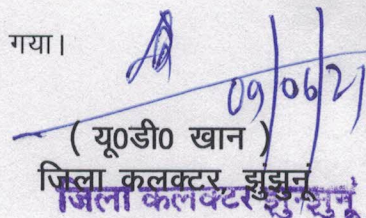 गया।
09/06/21
( यू0डी0 खान )
जिला कलक्टर, झुंझुनूं
जिला कलक्टर झुन्झुनूं